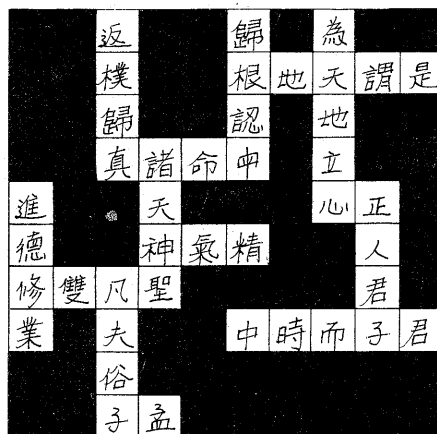 返 歸 為
樸 根地天謂是
歸 認 地
真諸命 立
進 天 心正
德 神氣精 人
修雙凡聖 君
業 夫 中時而子君
俗
子孟